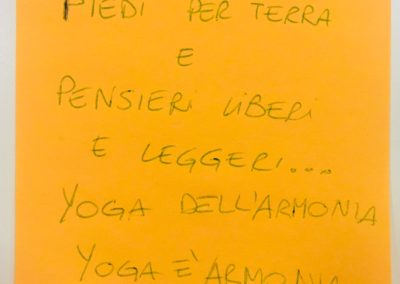 PIEDI PER TERRA
E
PENSIERI LIBERI
E LEGGERI....
YOGA DELL'ARMONIA
YOGA È ARMONIA